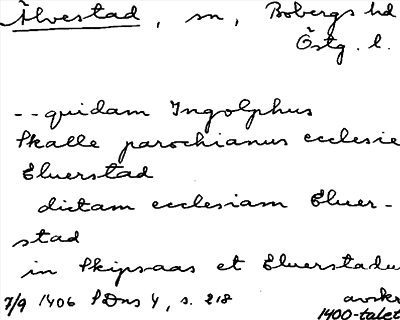 Älvestad, sn, Bobergs hd
Östg. l.
-- quidam Ingolphus
Skalle parochianus ecclesie
Eluerstad
dictam ecclesiam Eluer-
stad
in Skipsaas et Eluerstadu
7/9 1406 SDns 4, s. 218 avskr
1400-talet